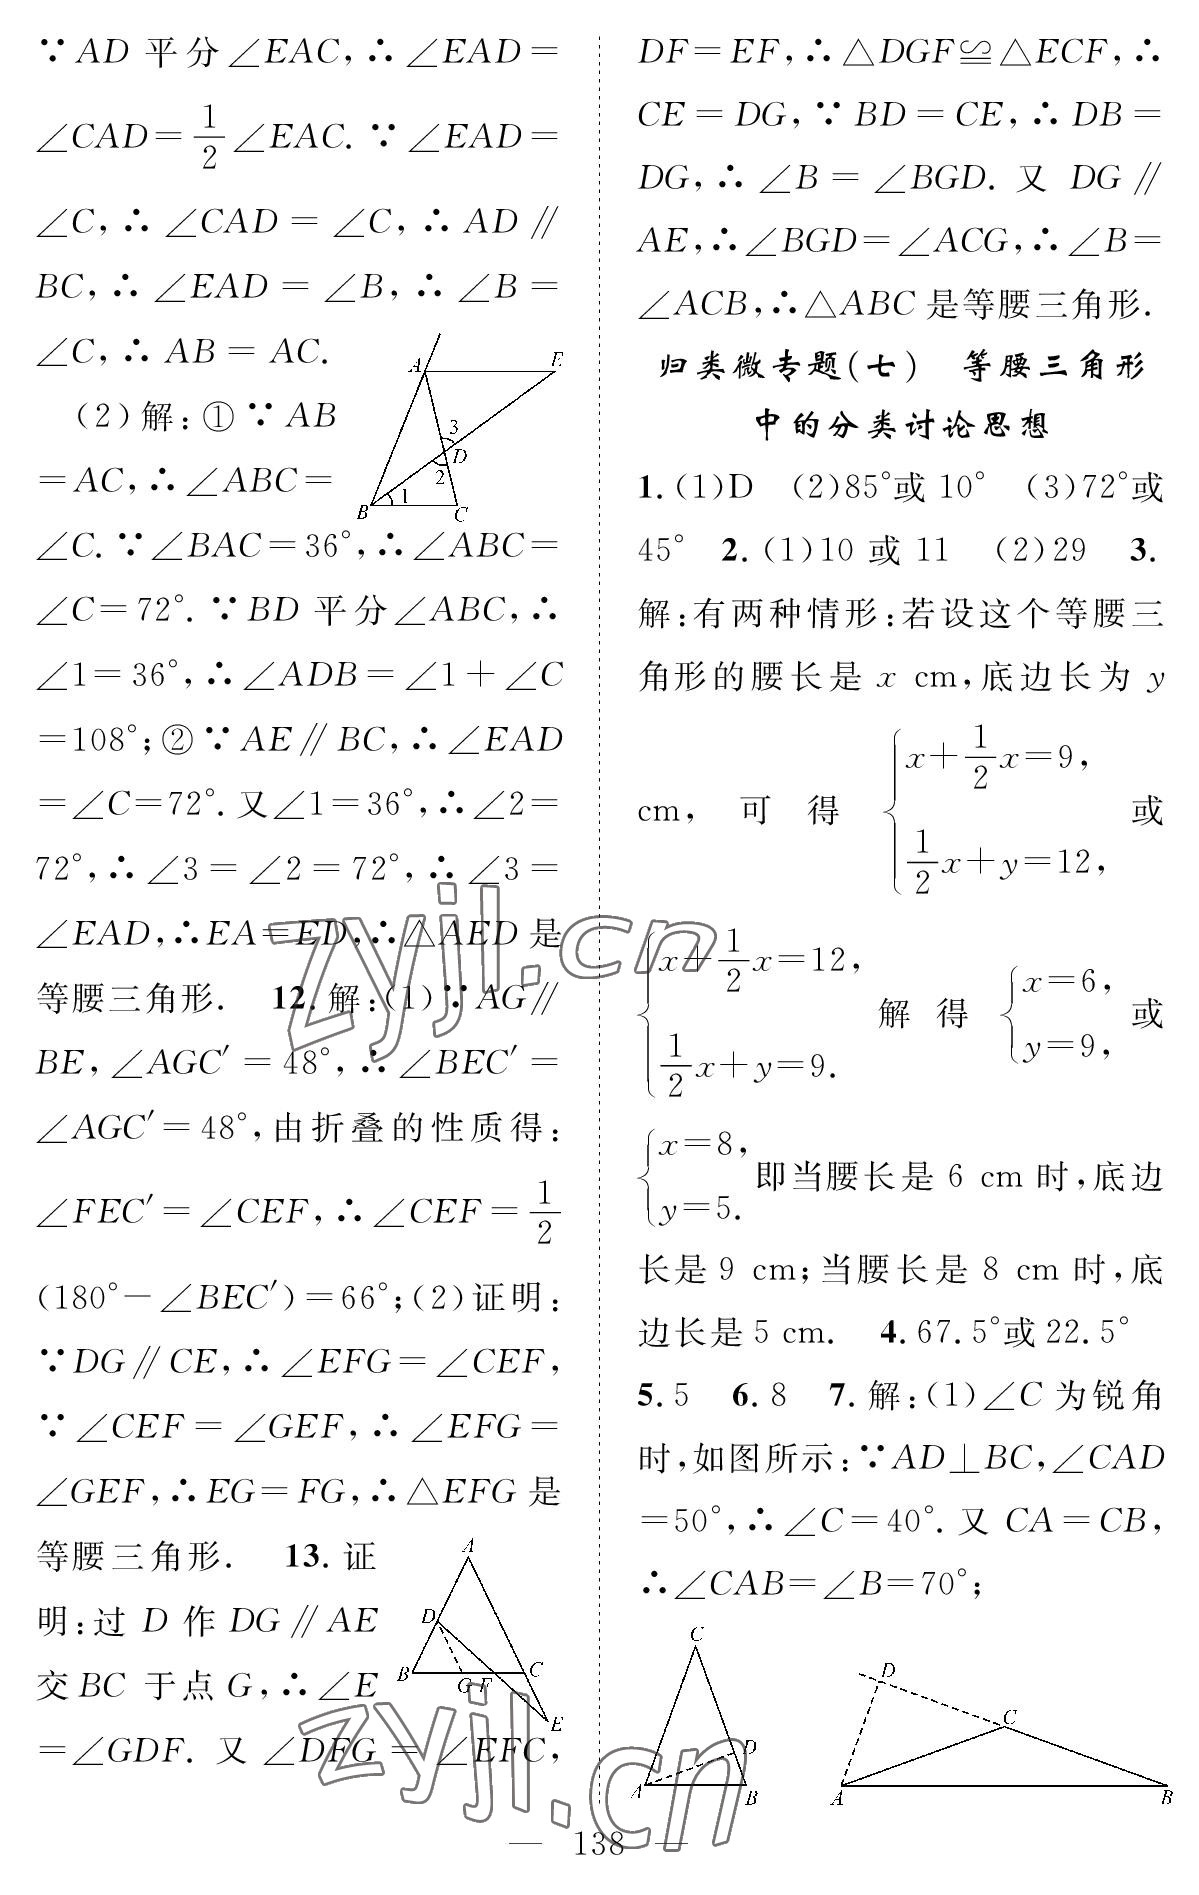 ∵AD 平分∠EAC,∴∠EAD=
∠CAD=1/2∠EAC.∵∠EAD=
∠C,∴∠CAD=∠C,∴AD∥
BC,∴∠EAD=∠B,∴∠B=
∠C,∴AB=AC.
(2)解:①∵AB
=AC,∴∠ABC=
A E 3 D 2 1 B C
∠C.∵∠BAC=36°,∴∠ABC=
∠C=72°.∵BD 平分∠ABC,∴
∠1=36°,∴∠ADB=∠1+∠C
=108°;②∵AE∥BC,∴∠EAD
=∠C=72°.又∠1=36°,∴∠2=
72°,∴∠3=∠2=72°,∴∠3=
∠EAD,∴EA=ED,∴△AED 是
等腰三角形. 12.解:(1)∵AG∥
BE,∠AGC′=48°,∴∠BEC′=
∠AGC′=48°,由折叠的性质得:
∠FEC′=∠CEF,∴∠CEF=1/2
(180°-∠BEC′)=66°;(2)证明:
∵DG∥CE,∴∠EFG=∠CEF,
∵∠CEF=∠GEF,∴∠EFG=
∠GEF,∴EG=FG,∴△EFG 是
等腰三角形. 13.证
明:过 D 作 DG∥AE
交 BC 于点 G,∴∠E
=∠GDF.又∠DFG=∠EFC,
A D B G F C E
DF=EF,∴△DGF≌△ECF,∴
CE=DG,∵BD=CE,∴DB=
DG,∴∠B=∠BGD.又 DG∥
AE,∴∠BGD=∠ACG,∴∠B=
∠ACB,∴△ABC 是等腰三角形.
归类微专题(七) 等腰三角形
中的分类讨论思想
1.(1)D (2)85°或 10° (3)72°或
45° 2.(1)10 或 11 (2)29 3.
解:有两种情形:若设这个等腰三
角形的腰长是 x cm,底边长为 y
cm,可得{x+1/2x=9, 1/2x+y=12,或
{x+1/2x=12, 1/2x+y=9. 解得{x=6, y=9,或
{x=8, y=5. 即当腰长是 6 cm 时,底边
长是 9 cm;当腰长是 8 cm 时,底
边长是 5 cm. 4.67.5°或22.5°
5.5 6.8 7.解:(1)∠C 为锐角
时,如图所示:∵AD⊥BC,∠CAD
=50°,∴∠C=40°.又 CA=CB,
∴∠CAB=∠B=70°;
C D A B
D C A B
— 138 —
zyjl.cn
zyjl.cn